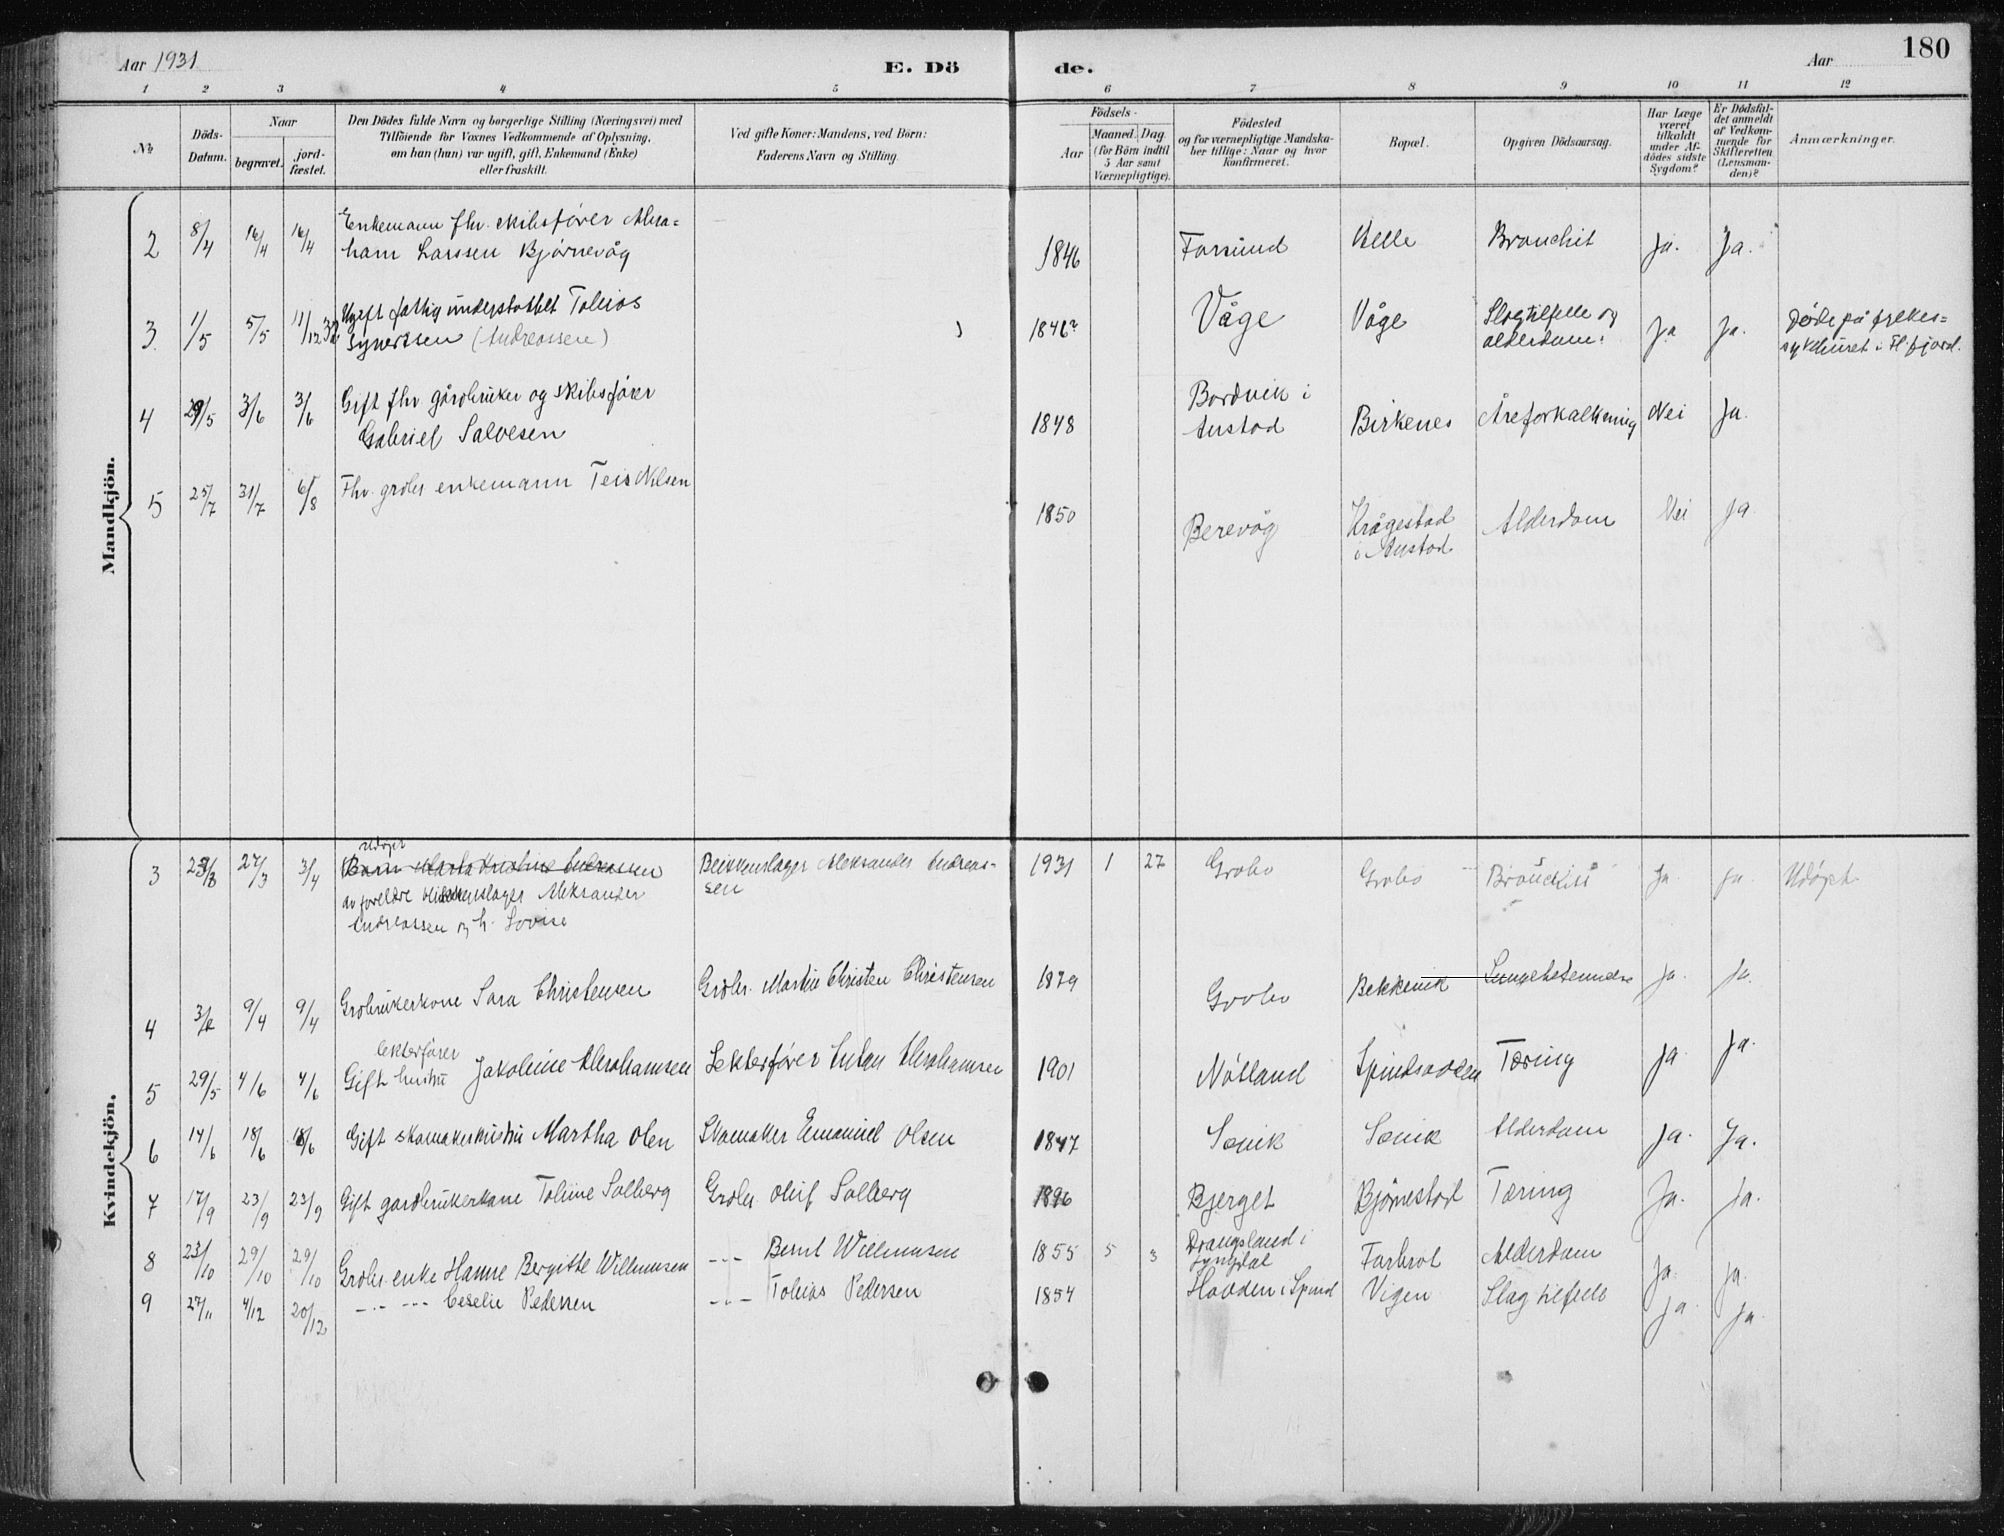 Aar 1931
E. Dö
de.
Aar
180
1 2 3 4 5 6 7 8 9 10 11 12
No
Döds-
Datum.
Naar
begravet.
jord-
fæstet.
Den Dödes fulde Navn og borgerlige Stilling (Næringsvei) med
Tilföiende for Voxnes Vedkommende af Oplysning,
om han (hun) var ugift, gift, Enkemand (Enke)
eller fraskilt.
Ved gifte Koner: Mandens, ved Börn:
Faderens Navn og Stilling.
Födsels-
Aar
Maaned. Dag
(for Börn indtil
5 Aar samt
Værnepligtige).
Födested
og for værnepligtige Mandska-
ber tillige: Naar og hvor
konfirmeret.
Bopæl.
Opgiven Dödsaarsag.
Har Læge
været
tilkaldt
under Af-
dödes sidste
Sygdom?
Er Dödsfal-
det anmeldt
af Vedkom-
mende for
Skifteretten
(Lensman-
den)?
Anmærkninger.
Mandkjön.
2 8/4 16/4 16/4 Enkemann fhv. skibsfører Abra-
ham Larssen Bjørnevåg
1846 Farsund Helle Bronchit Ja. Ja.
3 1/5 5/5 11/12 32 Ugift fattigunderstøttet Tobias
Synertsen (Andreassen)
1846? Våge Våge Slagtilfelle og
alderdom. Ja Ja. Døde på fylkes-
sykehuset i Fl.fjord.
4 29/5 3/6 3/6 Gift fhv. gårdbruker og skibsfører
Gabriel Salvesen
1848 Bordvik i
Austad Birkenes Åreforkalkning Nei Ja.
5 25/7 31/7 6/8 Fhv. grdbr enkemann Teis Nilsen
1850 Berevåg Krågestad
i Austad Alderdom Nei Ja
Kvindekjön.
3 27/3 3/4 udøpt
Barn Marta Kristine Andreassen
av foreldre blikkenslager Aleksander
Andreassen og h. Lovise
Blikkenslager Aleksander Andreas-
sen
1931 1 27 Grobo Grobo Ja. Ja. Udøpt
4 9/4 9/4 Grdbrukerkone Sara Christensen
Grdbr. Martin Christen Christensen
1879 Grobo Bekkevik Lungebetennelse Ja. Ja.
5 29/5 4/6 4/6 lekterfører
Gift hustru Jakobine Abrahamsen
Lekterfører Anton Abrahamsen
1901 Nøtland Spindsodden Tæring Ja Ja.
6 14/6 18/6 18/6 Gift skomakerhustru Martha Olen
Skomaker Emanuel Olsen
1847 Sævik Sævik Alderdom Ja. Ja.
7 17/9 23/9 23/9 Gift gardbrukerkone Toline Solberg
Grdbr. Oluf Solberg
1896 Bjerget Bjørnestad Tæring Ja. Ja.
8 23/10 29/10 29/10 Grdbr. enke Hanne Bergitte Willumsen
-- - Bernt Willumsen
1855 5 3 Drangsland i
Lyngdal Farbrot Alderdom Ja. Ja.
9 27/11 4/12 20/12 -- - --- Ceselie Pedersen
-- - Tobias Pedersen
1854 Hodden i Spind Vigen Slagtilfelle Ja. Ja.